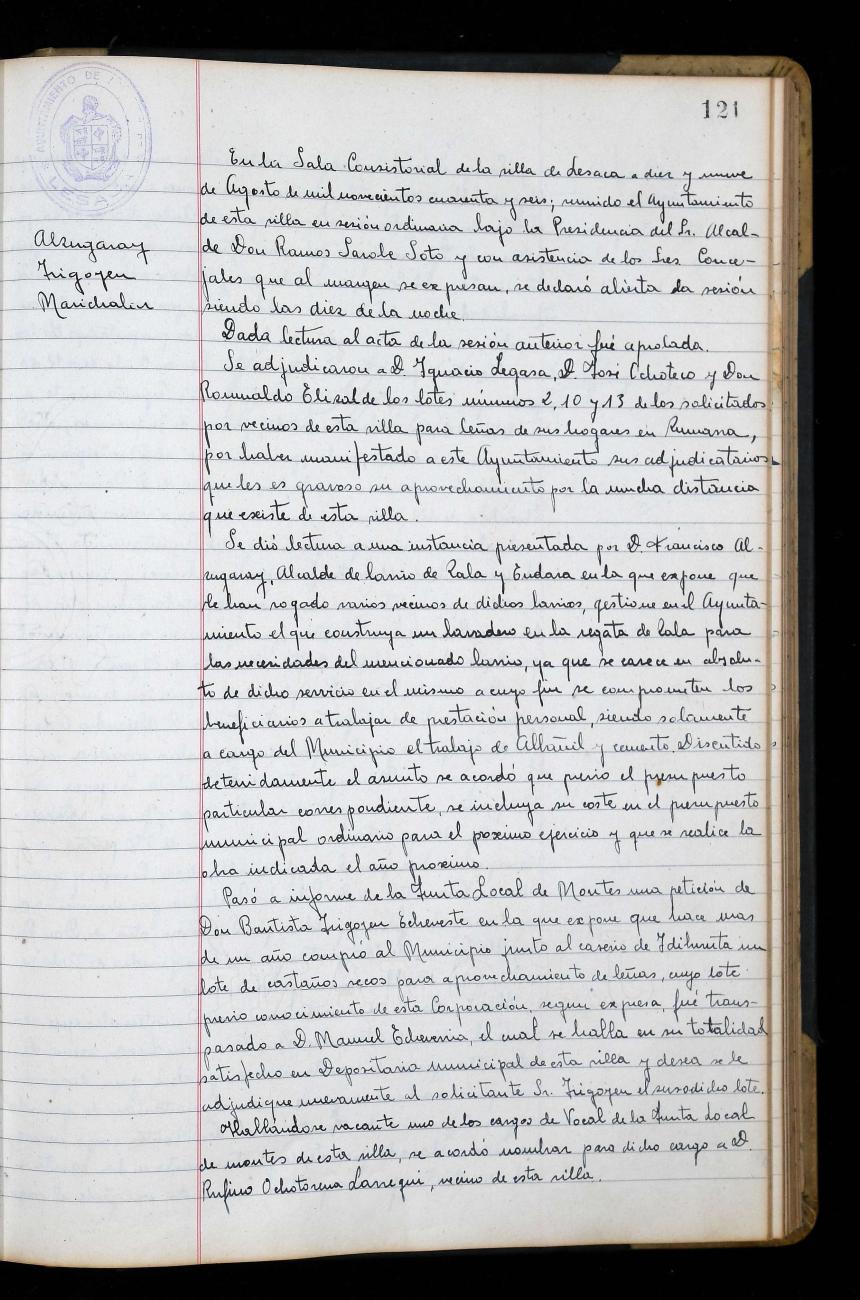 121
AYUNTAMIENTO DE
LESACA
Alzugaray
Irigoyen
Marichalar
En la Sala Consistorial de la villa de Lesaca a diez y nueve
de Agosto de mil novecientos cuarenta y seis; reunido el Ayuntamiento
de esta villa en sesión ordinaria bajo la Presidencia del Sr. Alcal-
de Don Ramos Sarole Soto y con asistencia de los Sres Conce-
jales que al margen se expresan, se declaró abierta la sesión
siendo las diez de la noche.
Dada lectura al acta de la sesión anterior fué aprobada.
Se adjudicaron a D. Ignacio Legasa, D. José Ochoteco y Don
Romualdo Elizalde los lotes números 2, 10 y 13 de los solicitados
por vecinos de esta villa para leñas de sus hogares en
por haber manifestado a este Ayuntamiento sus adjudicatarios
que les es gravoso su aprovechamiento por la mucha distancia
que existe de esta villa.
Se dió lectura a una instancia presentada por D. Francisco Al-
zugaray, Alcalde de barrio de Zala y Endara en la que expone que
le han rogado varios vecinos de dichos barrios, gestione en el Ayunta-
miento el que construya un lavadero en la regata de Zala para
las necesidades del mencionado barrio, ya que se carece en absolu-
to de dicho servicio en el mismo a cuyo fin se comprometen los
beneficiarios a trabajar de prestación personal, siendo solamente
a cargo del Municipio el trabajo de Albañil y cemento. Discutido
detenidamente el asunto se acordó que previo el presupuesto
particular correspondiente, se incluya su coste en el presupuesto
municipal ordinario para el poximo ejercicio y que se realice la
obra indicada el año proximo.
Pasó a informe de la Junta Local de Montes una petición de
Don Bautista Irigoyen Echeveste en la que expone que hace mas
de un año compró al Municipio junto al caserio de un
lote de castaños secos para aprovechamiento de leñas, cuyo lote
previo conocimiento de esta Corporación, segun expresa, fué trans-
pasado a D. Manuel Echeverria, el cual se halla en su totalidad
satisfecho en Depositaria municipal de esta villa y desea se le
adjudique nuevamente al solicitante Sr. Irigoyen el susodicho lote.
Hallándose vacante uno de los cargos de Vocal de la Junta Local
de montes de esta villa, se acordó nombrar para dicho cargo a D.
Rufino Ochotorena Larregui, vecino de esta villa.